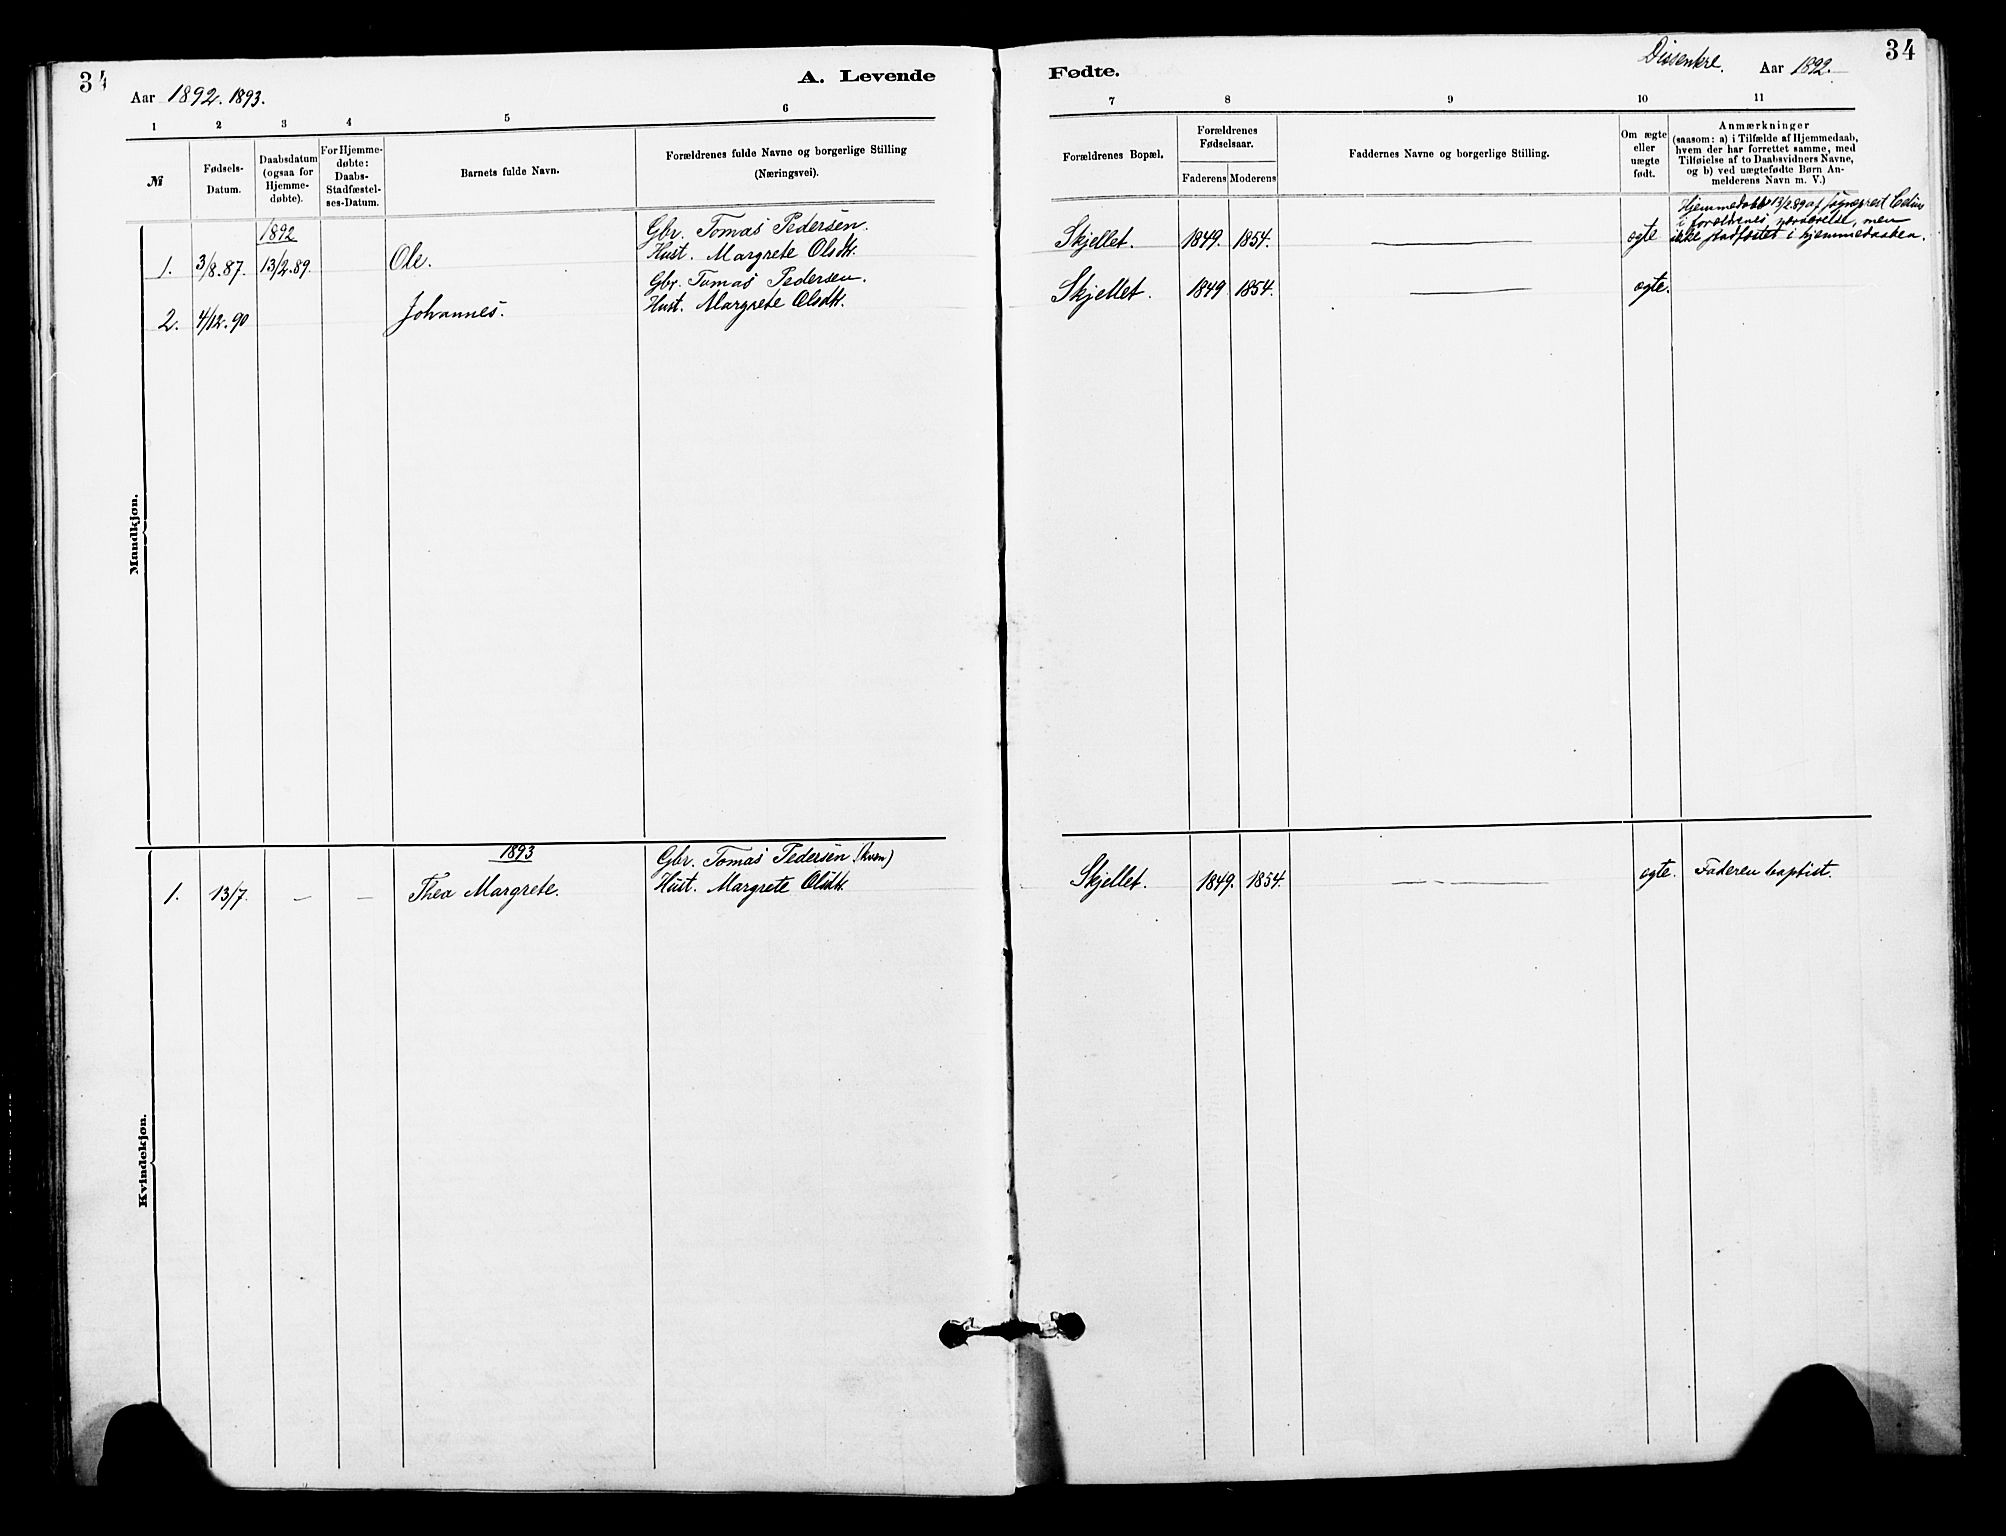 34
Aar 1892. 1893.
A. Levende
1 2 3 4 5 6
№
Fødsels-
Datum.
Daabsdatum
(ogsaa for
Hjemme-
døbte).
For Hjemme-
døbte:
Daabs-
Stadfæstel-
ses-Datum.
Barnets fulde Navn.
Forældrenes fulde Navne og borgerlige Stilling
(Næringsvei).
Mandkjøn.
1892
Gbr. Tomas Pedersen.
1. 3/8.87. 13/2.89. Ole. Hust. Margrete Olsdt.
Gbr. Tomas Pedersen.
2. 4/12.90 Johannes. Hust. Margrete Olsdt.
Kvindekjøn.
1893
Gbr. Tomas Pedersen (kvæn)
1. 13/7. – – Thea Margrete. Hust. Margrete Olsdt.
Fødte.
Dissentere. Aar 1892.
34
7 8 9 10 11
Forældrenes Bopæl.
Forældrenes
Fødselsaar.
Faderens Moderens
Faddernes Navne og borgerlige Stilling.
Om ægte
eller
uægte
født.
Anmærkninger
(saasom: a) i Tilfælde af Hjemmedaab,
hvem der har forrettet samme, med
Tilføielse af to Daabsvidners Navne,
og b) ved uægtefødte Børn An-
melderens Navn m. V.)
Skjellet. 1849. 1854. — ægte
Hjemmedøbt 13/2 89 af sogneprest
i forældrenes nærværelse, men
ikke stadfæstet i hjemmedaaben.
Skjellet. 1849 1854. — ægte.
Skjellet. 1849. 1854. — ægte. Faderen baptist.